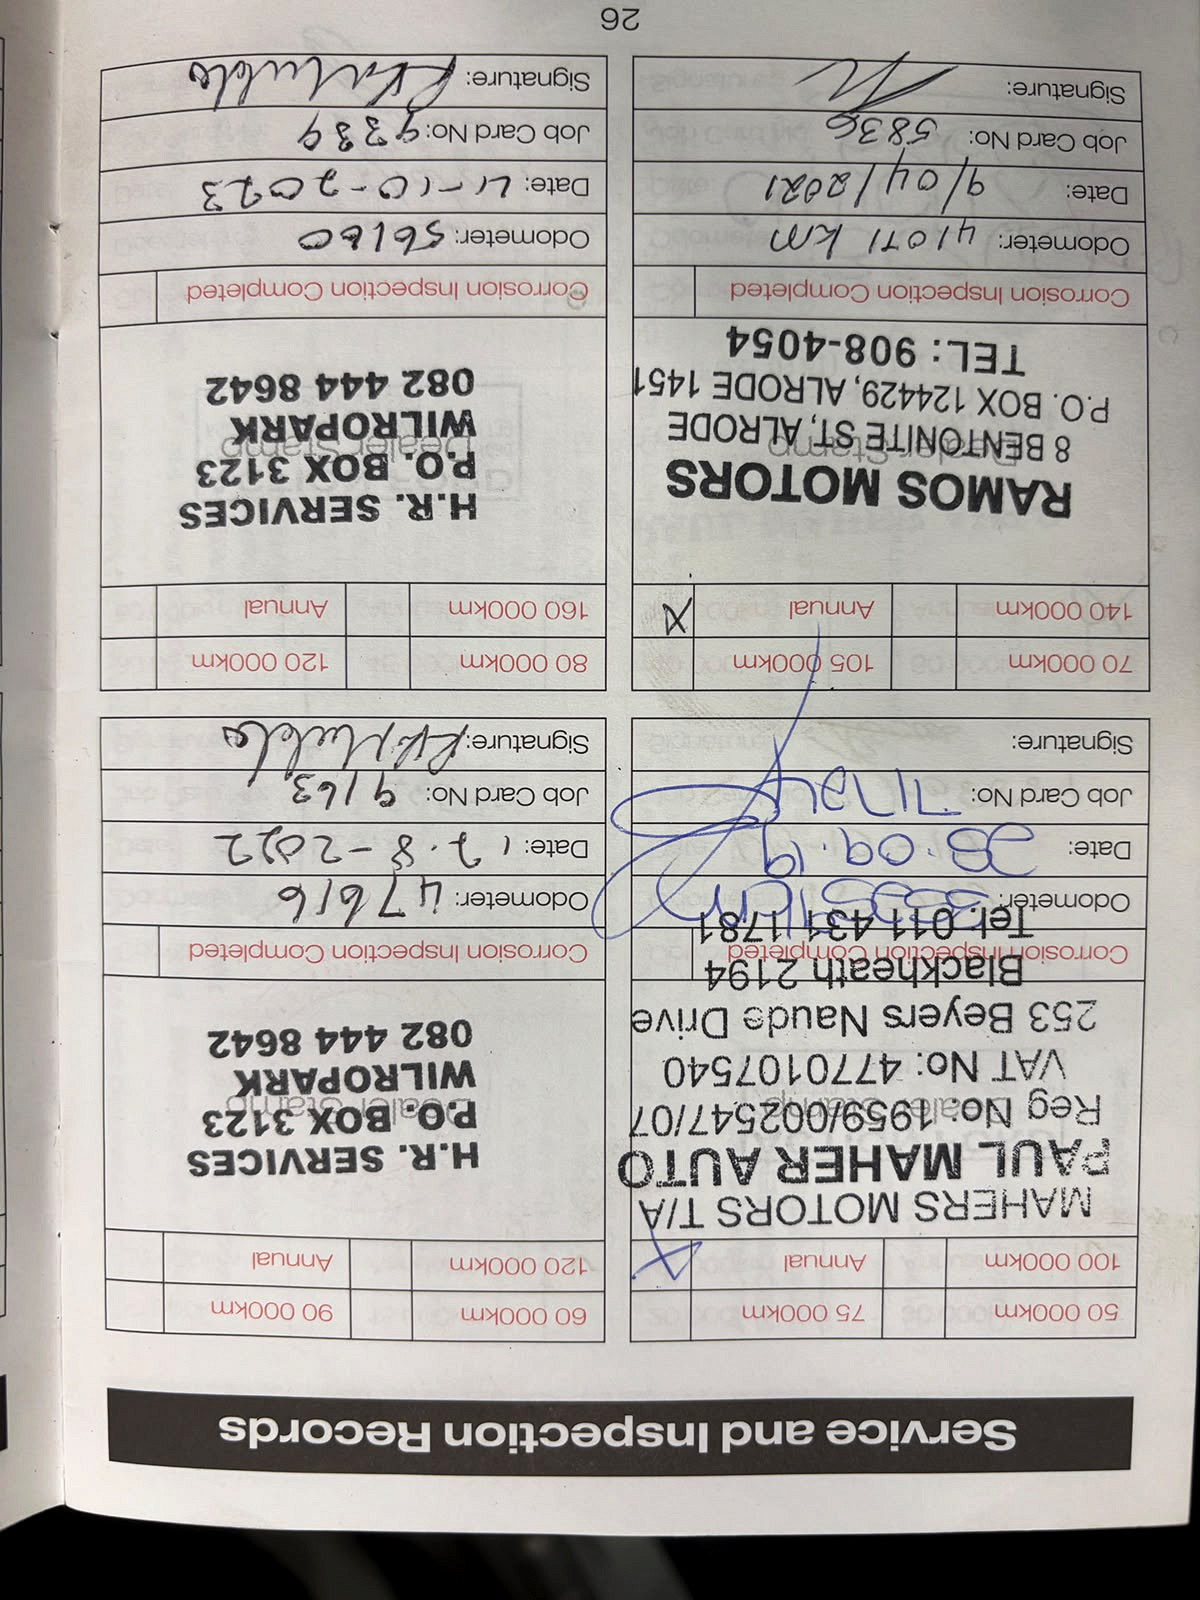 Service and Inspection Records
50 000km 75 000km
100 000km Annual X
MAHERS MOTORS T/A
PAUL MAHER AUTO
Reg No: 1959/002547/07
VAT No: 4770107540
253 Beyers Naude Drive
Blackheath 2194
Tel: 011 431 1781
Dealer Stamp
Corrosion Inspection Completed
Odometer:
Date: 28.09.19
Job Card No: 71724
Signature:
60 000km 90 000km
120 000km Annual
H.R. SERVICES
P.O. BOX 3123
WILROPARK
082 444 8642
Dealer Stamp
Corrosion Inspection Completed
Odometer: 47616
Date: 17.8-2022
Job Card No: 9163
Signature:
70 000km 105 000km
140 000km Annual X
RAMOS MOTORS
8 BENTONITE ST, ALRODE
P.O. BOX 124429, ALRODE 1451
TEL: 908-4054
Dealer Stamp
Corrosion Inspection Completed
Odometer: 41071 km
Date: 9/04/2021
Job Card No: 5836
Signature:
80 000km 120 000km
160 000km Annual
H.R. SERVICES
P.O. BOX 3123
WILROPARK
082 444 8642
Dealer Stamp
Corrosion Inspection Completed
Odometer: 56160
Date: 4-10-2023
Job Card No: 9339
Signature:
26